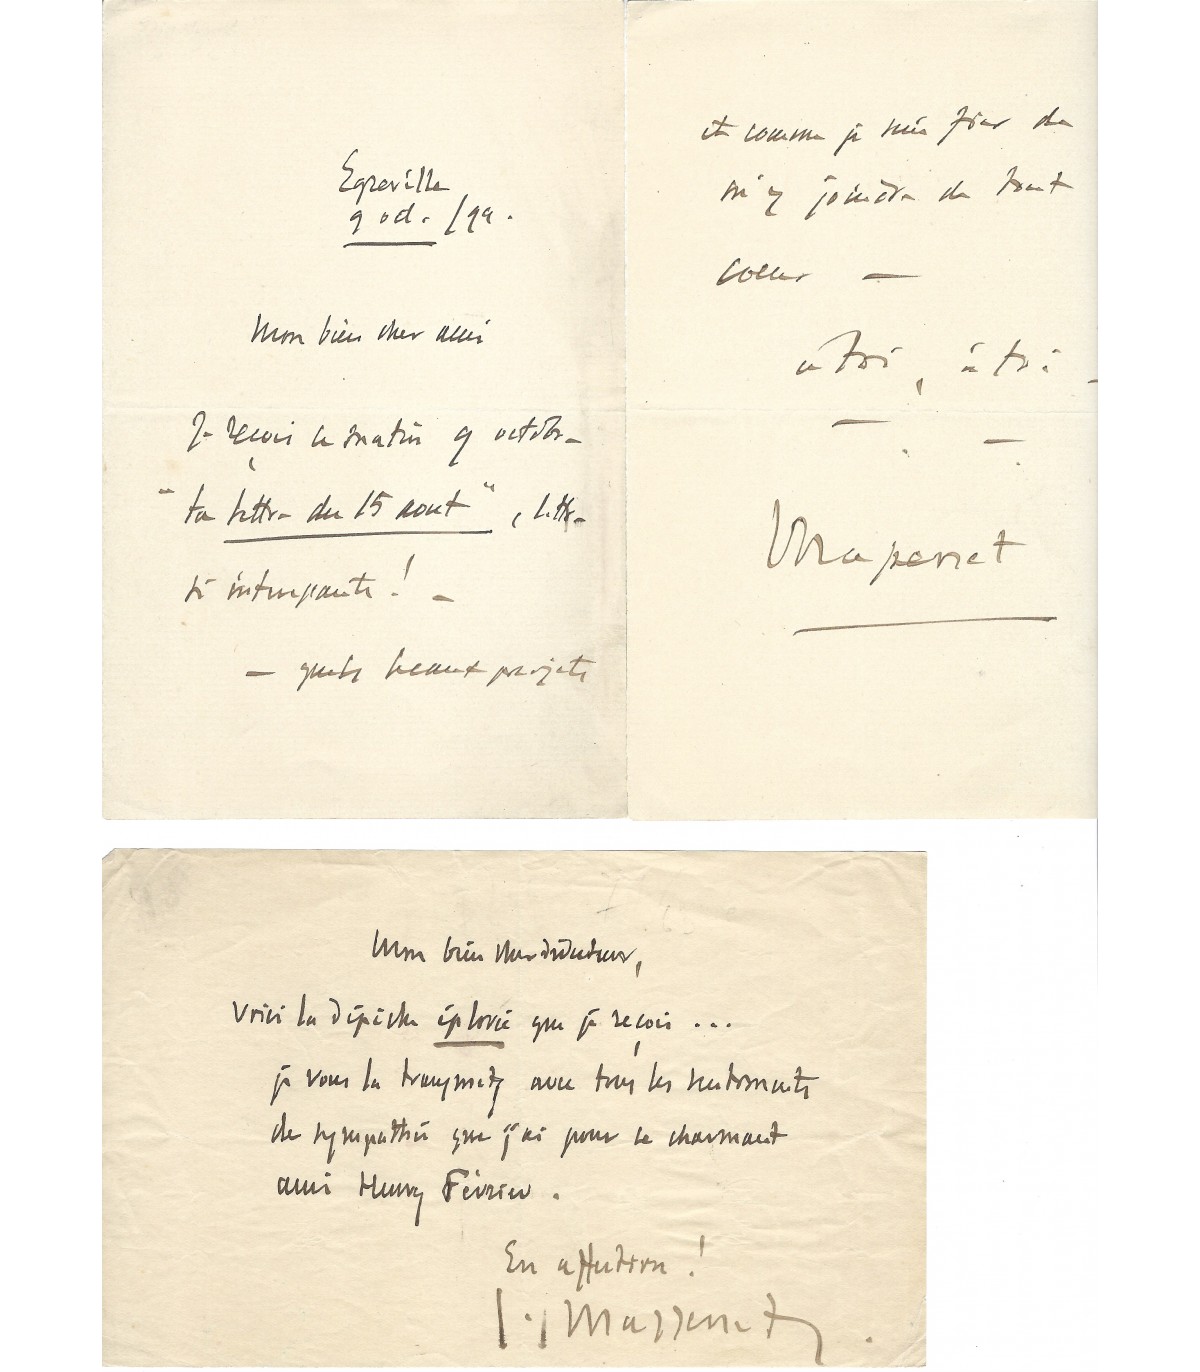 Egreville
9 oct. /99.
Mon bien cher ami
Je reçois ce matin 9 octobre
"ta lettre du 15 aout", lettre
si interessante ! –
– quels beaux projets
et comme je suis fier de
m'y joindre de tout
coeur –
à toi, à toi –
Massenet
Mon bien cher directeur,
Voici la dépêche éplorée que je reçois ...
je vous la transmets avec tous les sentiments
de sympathie que j'ai pour ce charmant
ami Henry Février.
En affection !
J. Massenet.